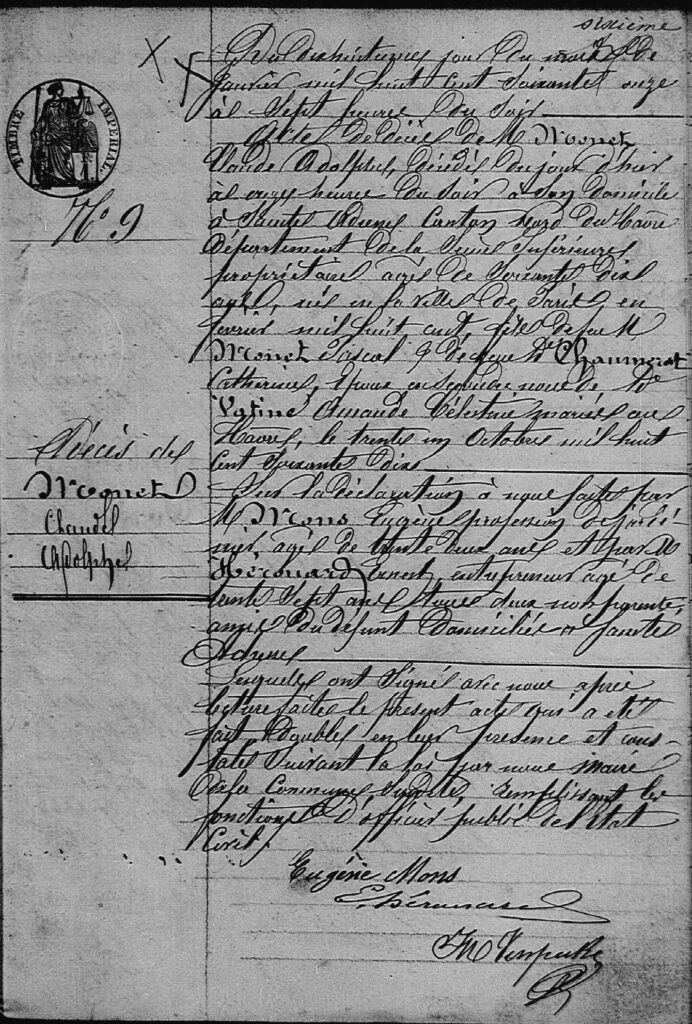 sixième
Du dix huitième jour du mois de
Janvier mil huit cent soixante onze
à Sept heures du Soir
Acte de décès de M Monet
Claude Adolphe, décédé du jour d'hier
à onze heures du Soir à son domicile
à Sainte Adresse Canton Nord du Havre
Département de la Seine Inférieure
propriétaire agé de Soixante dix
né en la Ville de Paris, en
février mil huit cent, fils de feu M
Monet Pascal & de Chaumerat
Catherine, Epoux en Secondes noces de
Vatine Amande Célestine mariés au
Havre, le trente un Octobre mil huit
cent Soixante dix
Sur la déclaration à nous faite par
M. Mons Eugène profession de jardi
nier agé de trente deux ans et par M
Hérouard Ernest, entrepreneur agé de
trente Sept ans tous deux non parents,
amis du défunt domiciliés à Sainte
Adresse
Lesquels ont Signé avec nous après
lecture faite le present acte qui a été
fait double en leur présence et cons
taté Suivant la loi par nous maire
de la Commune Susdite, remplissant les
fonctions d'officier public de l'état
Civil.
TIMBRE IMPERIAL
N° 9
Décès de
Monet
Claude
Adolphe
Eugène Mons